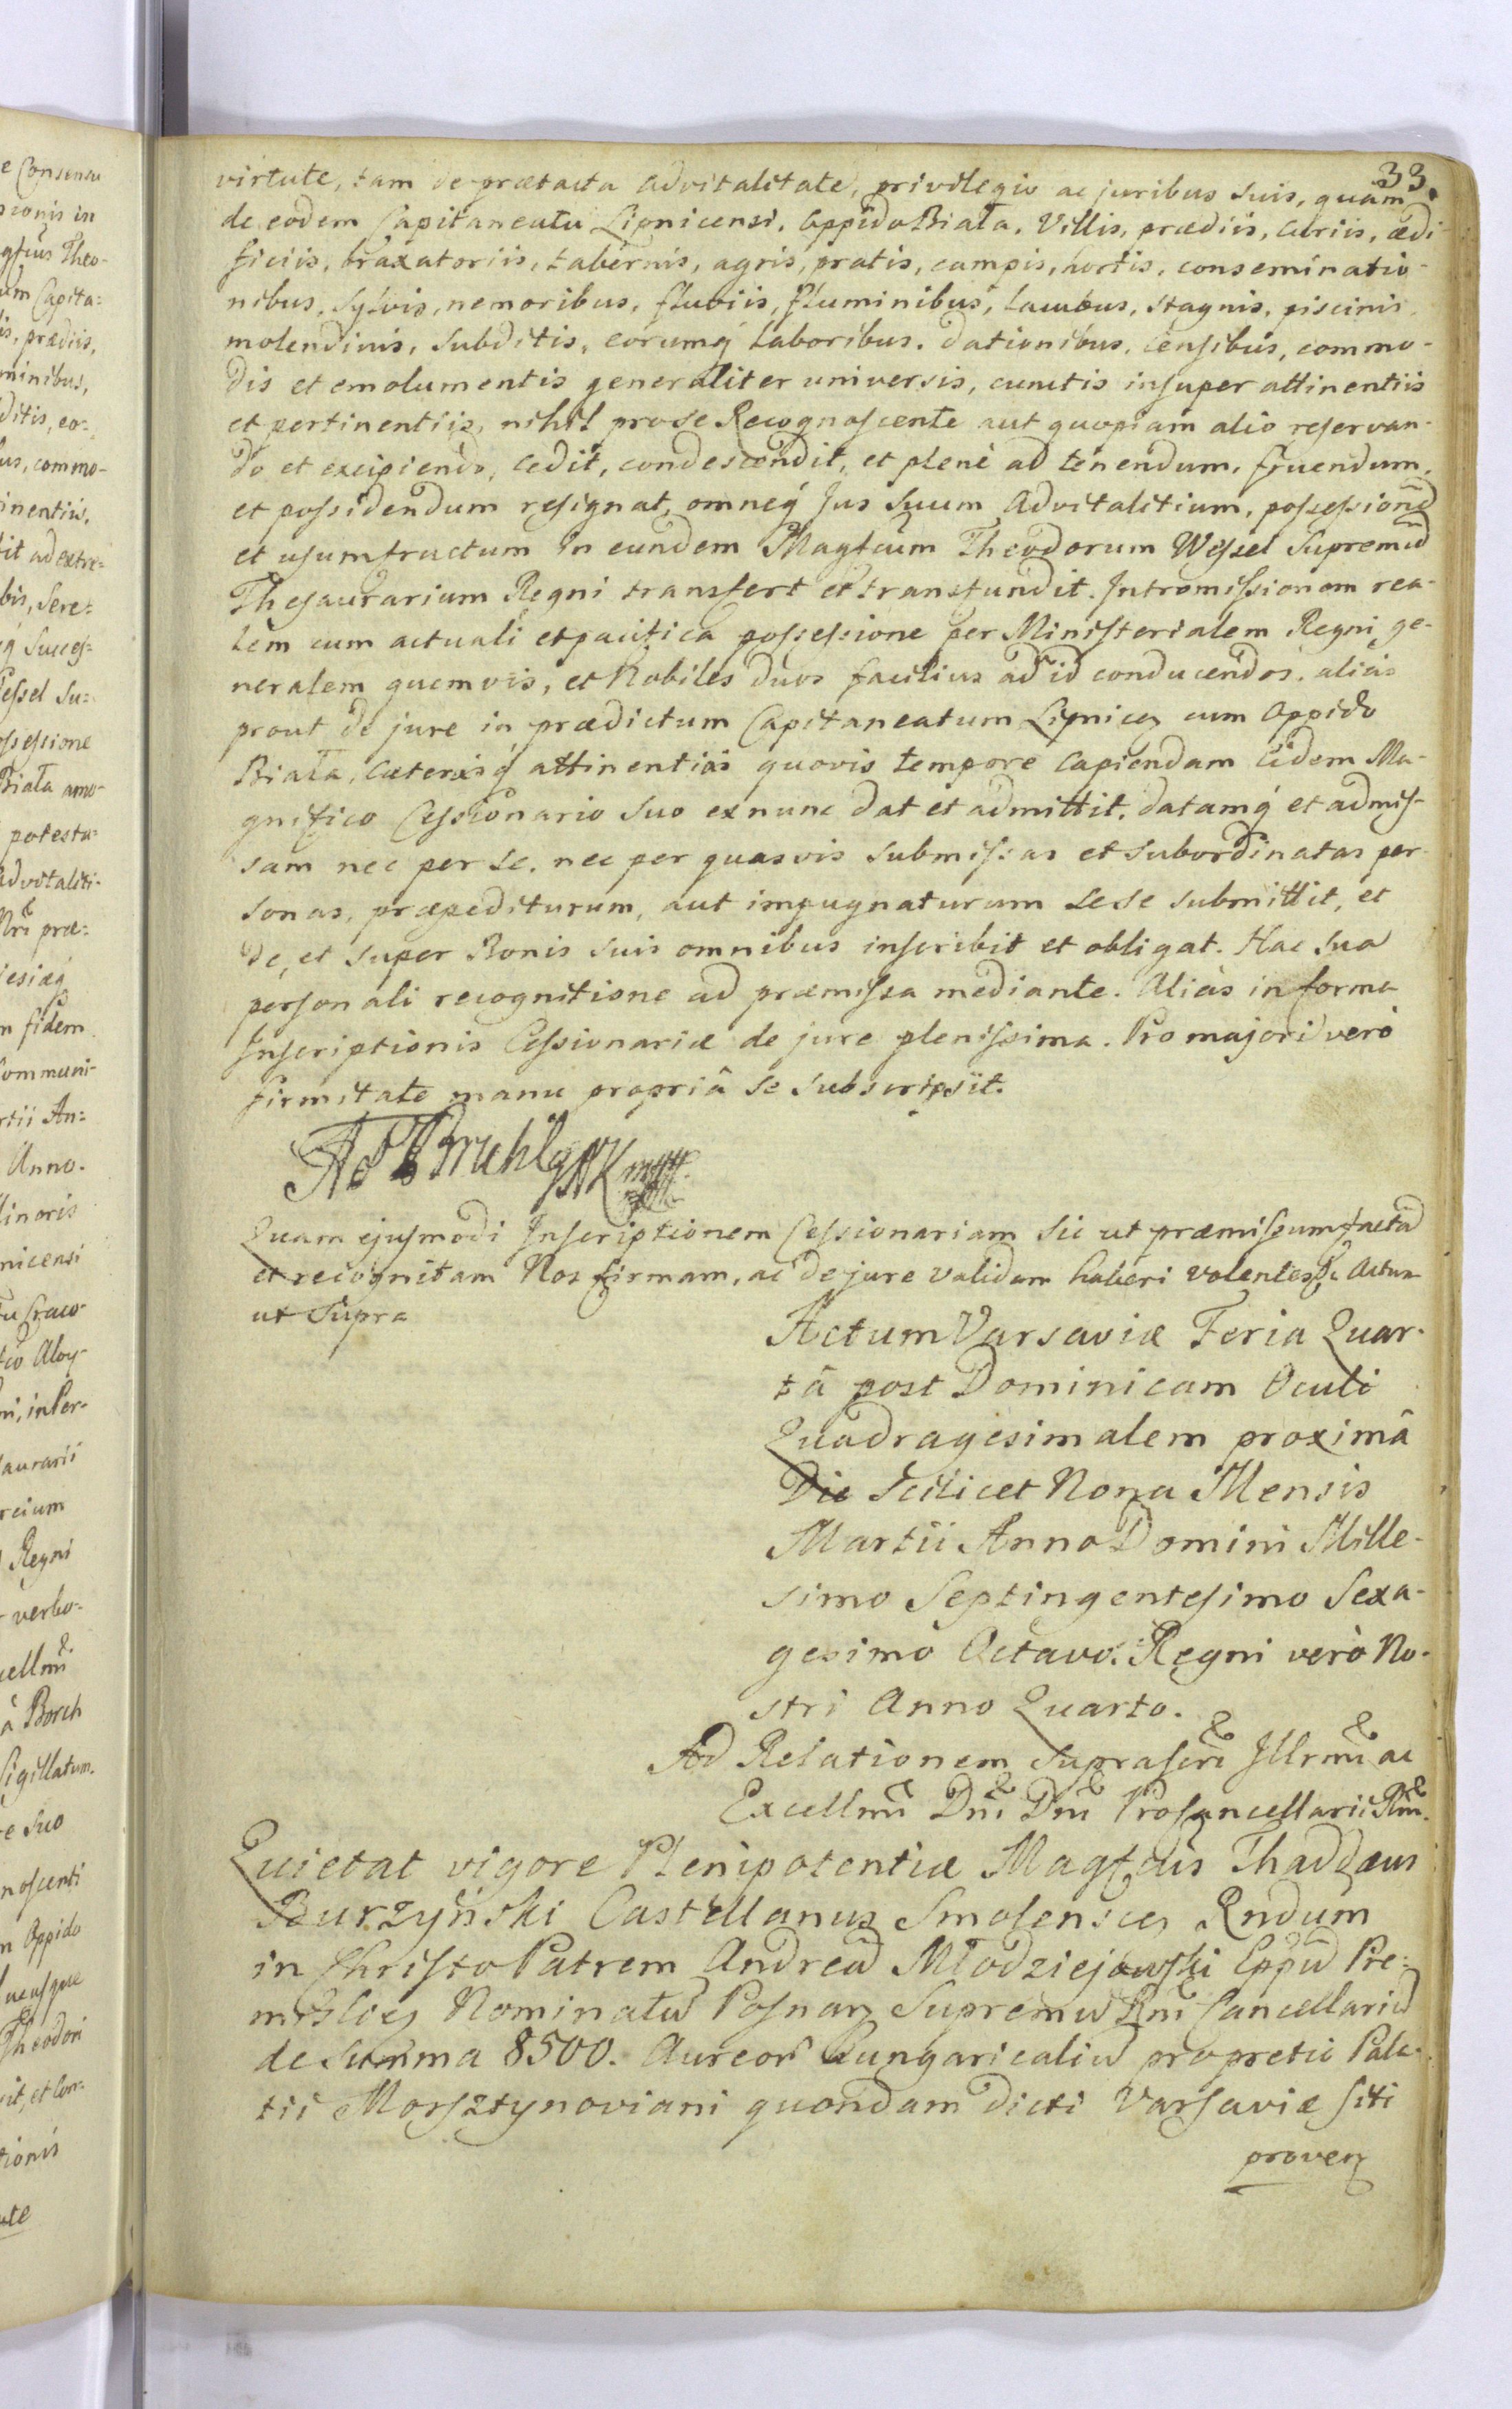 33.
virtute, tam de prætacta advitalitate, privilegio ac juribus suis, quam
de eodem Capitaneatu Lipnicensi, Oppido Biała, Villis, prædiis, curiis, ædi-
ficiis, braxatoriis, tabernis, agris, pratis, campis, hortis, conseminatio-
nibus, sylvis, nemoribus, fluviis, fluminibus, lacubus, stagnis, piscinis,
molendinis, Subditis, eorumq́ laboribus, dationibus, censibus, commo-
dis et emolumentis generaliter universis, cunctis insuper attinentiis
et pertinentiis, nihil pro se Recognoscente aut quopiam alio reservan-
do et excipiendo, cedit, condescendit, et plenè ad tenendum, fruendum,
et possidendum resignat, omneq́ Jus Suum Advitalitium, possessionẽ
et usumfructum in eundem Magfcum Theodorum Wessel Supremũ
Thesaurarium Regni transfert et transfundit. Intromissionem rea-
lem cum actuali et pacifica possessione per Ministerialem Regni ge-
neralem quemvis, et Nobiles duos facilius ad id conducendos, aliàs
prout de jure in prædictum Capitaneatum Lipnicen cum Oppido
Biała, cæterisq́ attinentiis quovis tempore capiendam Eidem Ma-
gnifico Cessionario Suo ex nunc dat et admittit, datamq́ et admis-
sam nec per se, nec per quasvis submissas et subordinatas per-
sonas, præpediturum, aut impugnaturum sese submittit, et
de, et super Bonis suis omnibus inscribit et obligat. Hac sua
personali recognitione ad præmissa mediante. Aliàs in forma
Inscriptionis Cessionariæ de jure plenissima. Pro majori verò
firmitate manu propriâ se subscripsit.
Bruhl
Quam ejusmodi Inscriptionem Cessionariam sic ut præmissum factã
et recognitam Nos firmam, ac de jure validam haberi volentes Actum
ut Supra
Actum Varsaviæ Feria Quar-
tâ post Dominicam Oculi
Quadragesimalem proximâ
Die Scilicet Nona Mensis
Martii Anno Domini Mille-
simo Septingentesimo Sexa-
gesimo Octavo. Regni verò No-
stri Anno Quarto.
Ad Relationem suprascri Illrmi ac
Excellmi Dni Dni Procancellarii Rni.
Quietat vigore Plenipotentiæ Magfcus Thaddæus
Burzyński Castellanus Smolenscen Rndum
in Christo Patrem Andreã Młodziejowski Eppũ Pre-
mislien Nominatũ Posnan Supremũ Rni Cancellariũ
de Summa 8500. Aureor Hungaricaliũ pro pretio Pala-
tii Morsztynoviani quondam dicti Varsaviæ siti
proven